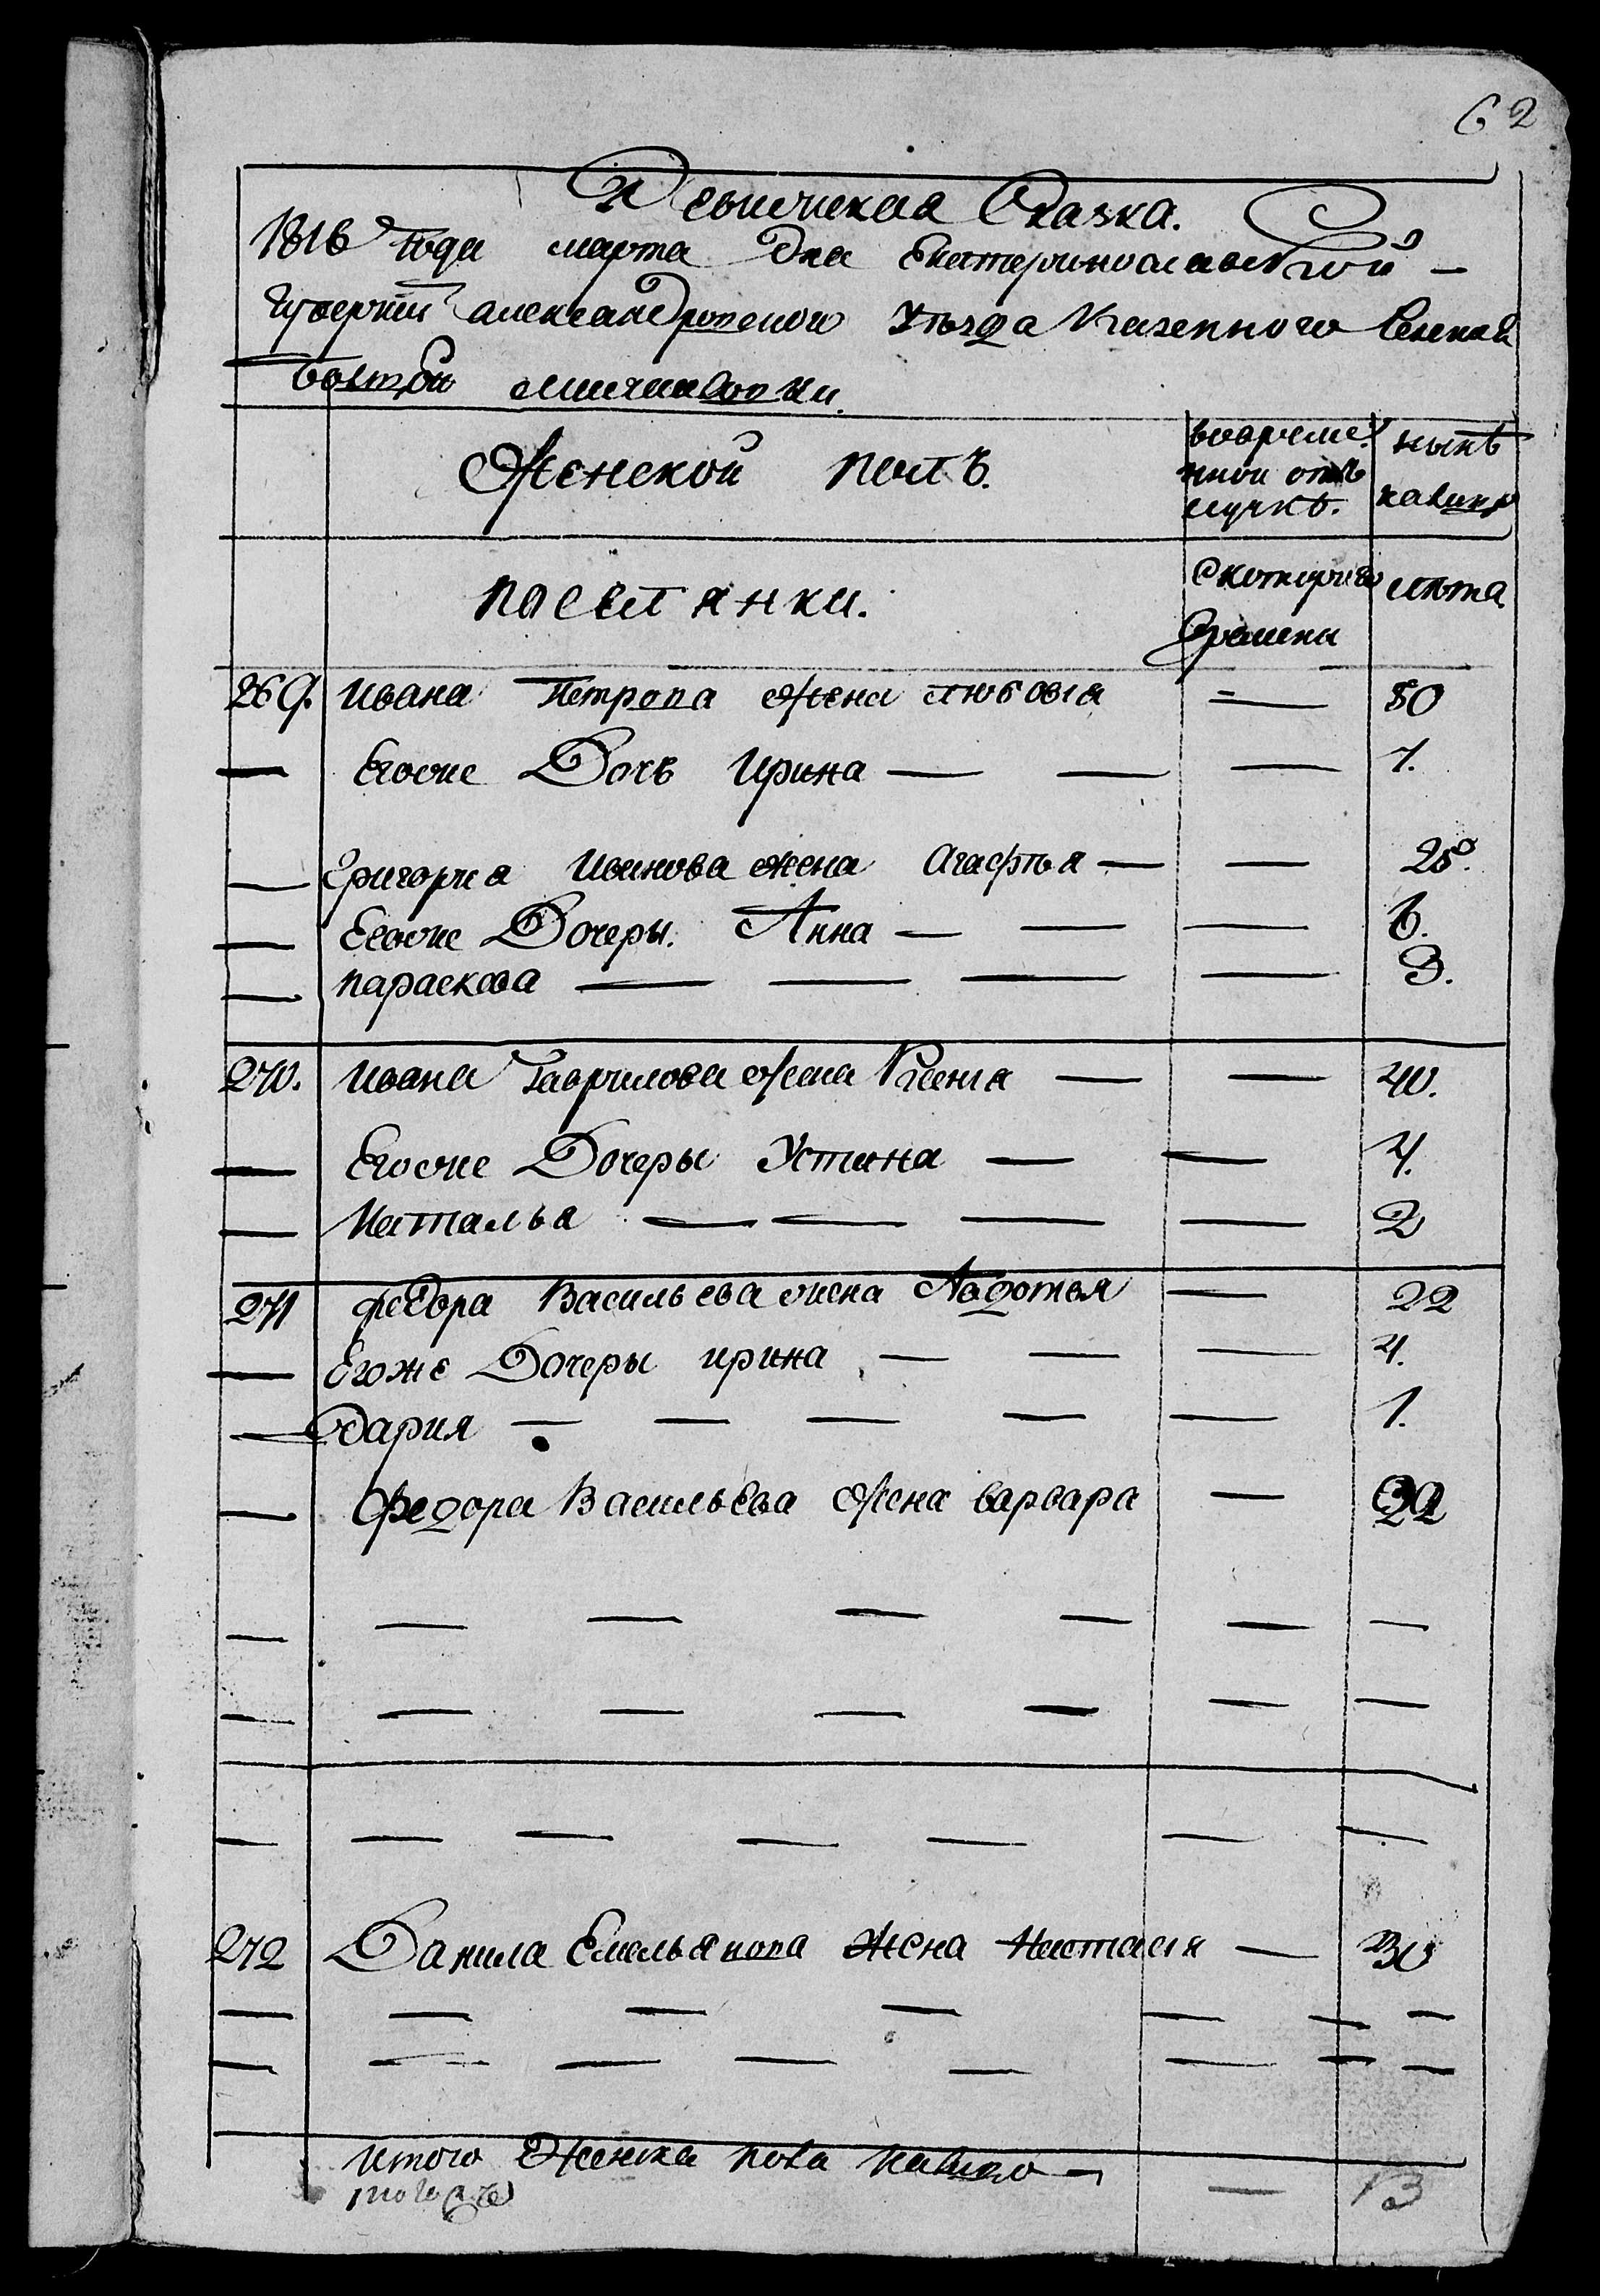 62
Ревижская Сказка.
1816 года марта дня Екатеринославской
Губернии александровской уезда Казенного Селения
женской полъ.
вовреме
нной отъ
лучкѣ.
нынѣ
налицо
поселянки.
скотораго
времени
лѣта
269. Ивана Петрова жена Любовия — 50
— Егоже Дочь Ирина — — — 1.
— Григория Иванова жена Агафья — — 25.
— Егоже Дочеры. Анна — — — 6.
— параскова — — — — 3.
270. Ивана Гаврилова жена Ксения — — 40.
— Егоже Дочеры Устина — — 4.
— Наталья — — — — 2
271 федора Васильева жена Авдотья — 22
— Егоже Дочеры ирина — — — 4.
— Дария — — — — — 1.
— Федора Васильева жена варвара — 22
— — — — — — —
— — — — — — —
— — — — — — —
272 Данила Емельянова жена Настасия — 30
— — — — — — —
— — — — — — — —
итого женска пола налицо —
— 13